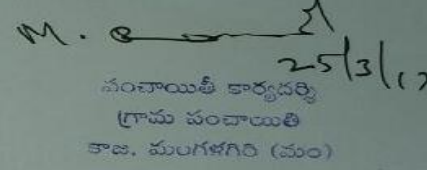 M.
25/3/17
పంచాయితీ కార్యదర్శి
గ్రామ పంచాయితి
కాజ. మంగళగిరి (మం)